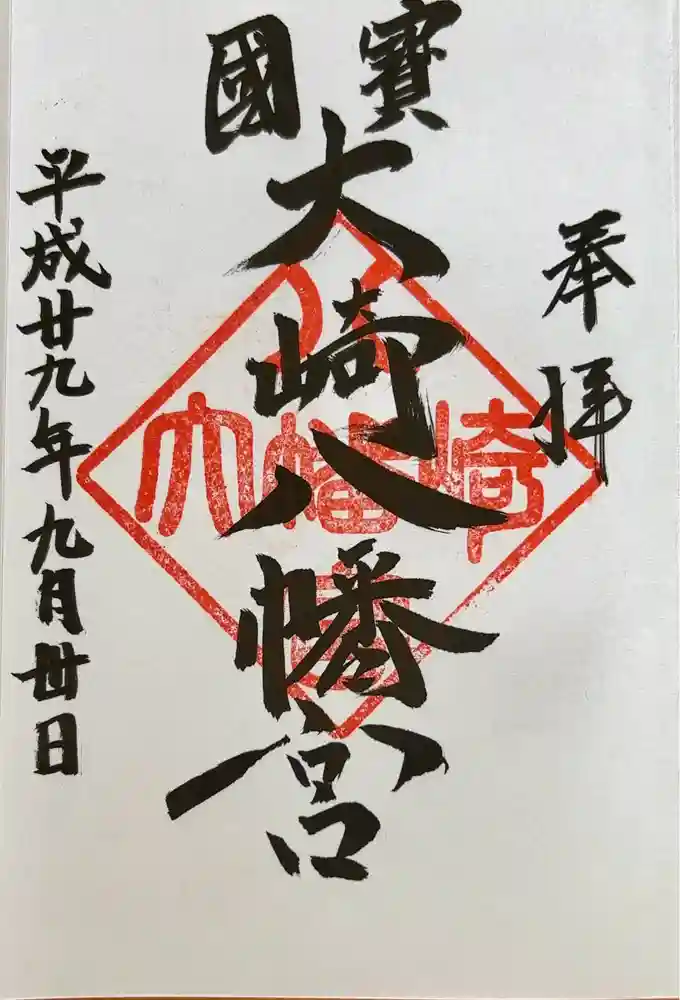 奉拝
國寳
大崎八幡宮
平成廿九年九月丗日
大崎八幡宮